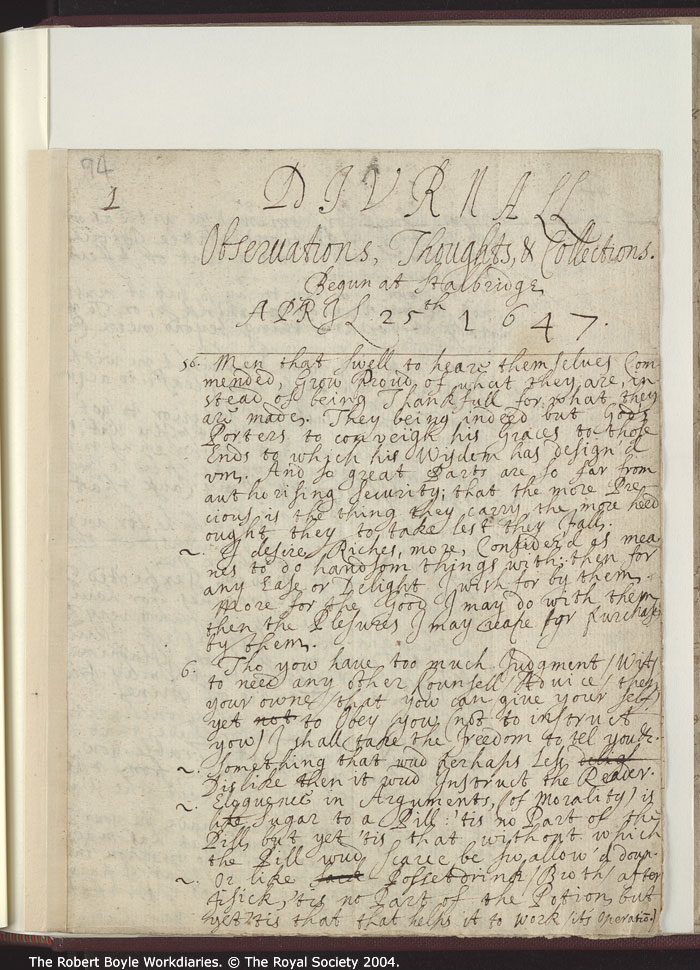 94
1
DIURNALL
Observations, Thoughts, & Collections.
Begun at Stalbridge
APRIL 25th 1647.
56. Men that swell to heare themselves Com
mended, Grow Proud of what they are, in
stead of being Thankfull for what they
are made. They being indeed but Gods
Porters to conveigh his Graces to those
Ends to which his Wisdom has design'd
um. And so great Parts are so far from
authorising Security; that the more Pre
cious is the thing they carry, the more heed
ought they to take lest they Fall.
~. I desire Riches, more, Consider'd as mea
nes to do handsom things with; then for
any Ease or Delight I wish for by them.
More for the Good I may do with them
then the Plesures I may purchase
by them.
6. Tho you have too much Judgment/Wit/
to need any other Counsell/Advice/ then
your owne/that you can give your self/
yet not to Obey you (not to instruct
you) I shall take the freedom to tell you &c.
~. Something that wud perhaps Less
Dislike then it wud Instruct the Reader.
~. Eloquence in Arguments, (of Morality) is
like Sugar to a Pill: 'tis no Part of the
Pill, but yet 'tis that without which
the Pill wud scarce be swallow'd down.
~. Or like Possetdrink/Broth/ after
fisick, 'tis no Part of the Potion, but
yet 'tis that that helps it to work/its Operatiō.
The Robert Boyle Workdiaries. © The Royal Society 2004.